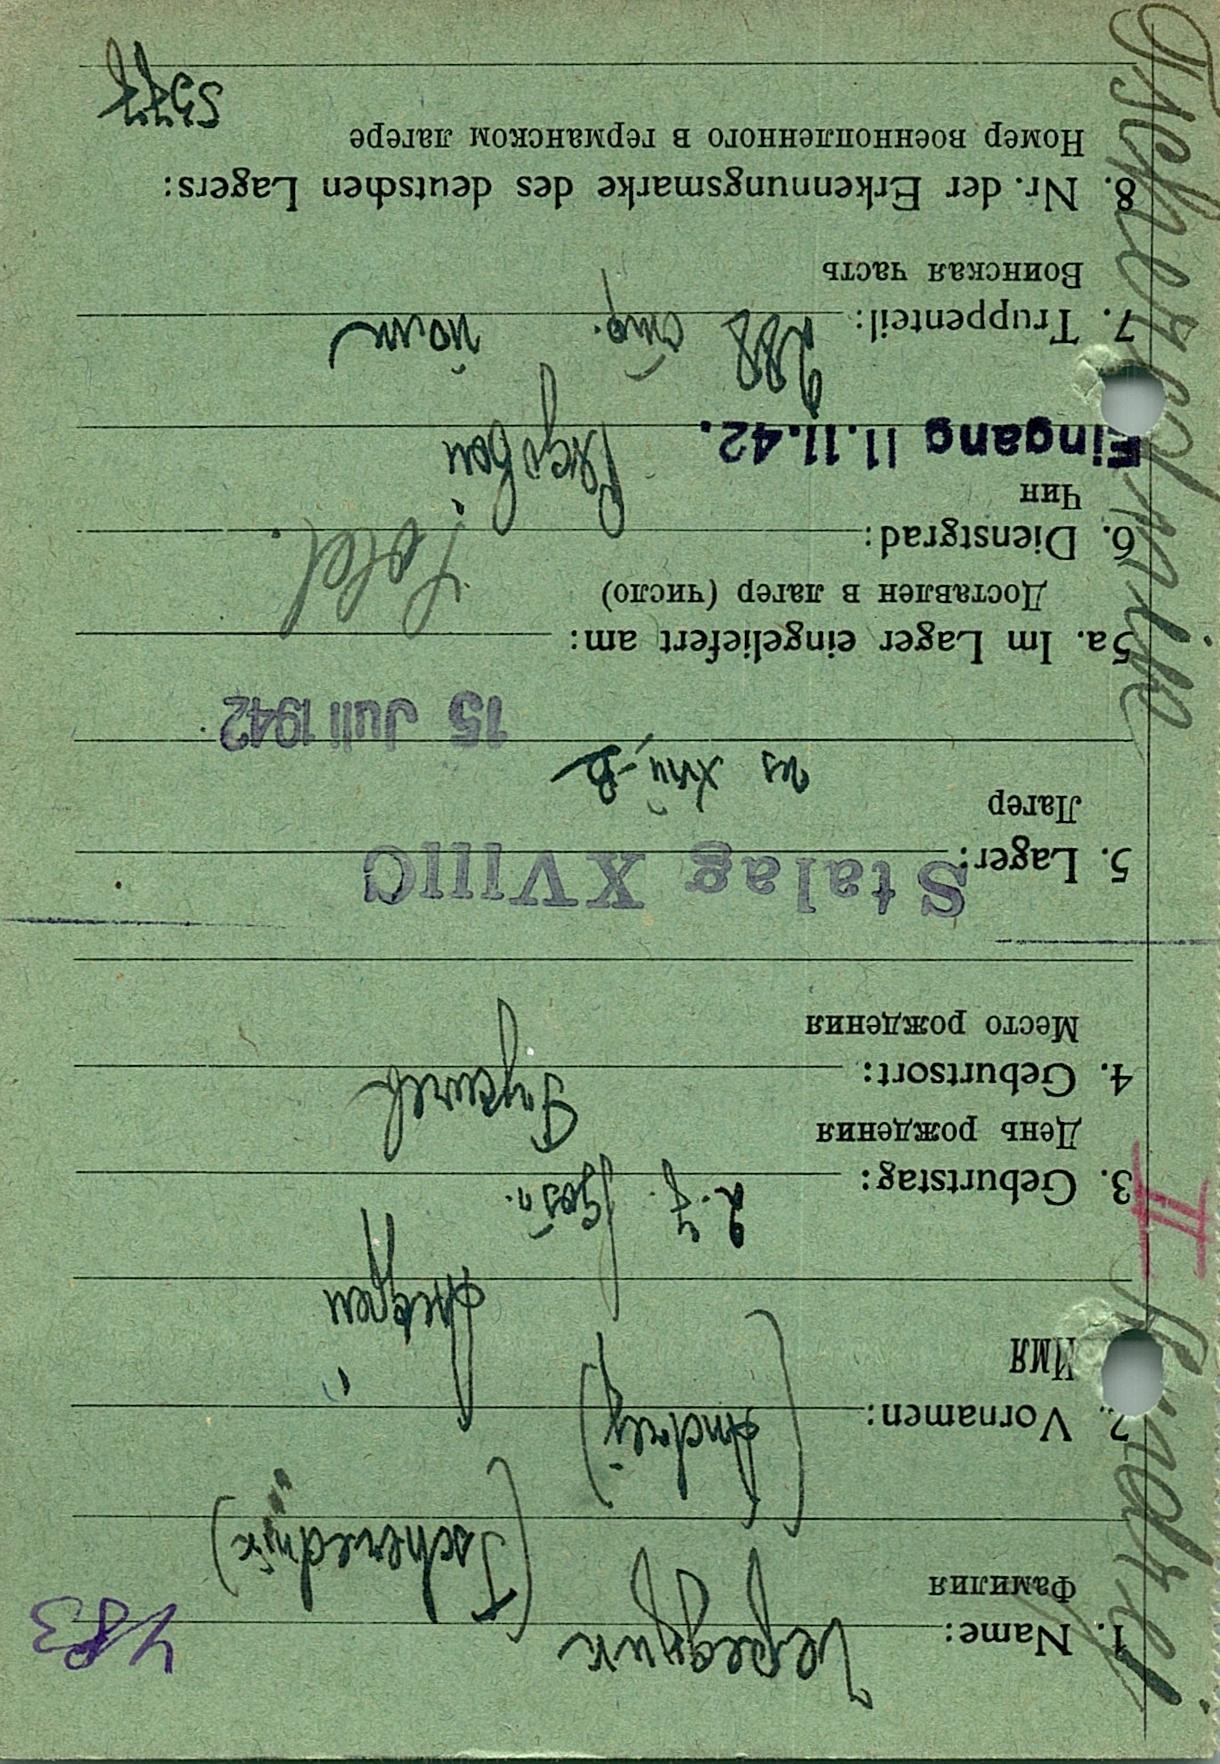 483
1. Name: Чередник
Фамилия
(Tscherednik)
2. Vornamen: (Andrej)
Имя
Андрей
3. Geburtstag: 2.7.
День рождения
4. Geburtsort:
Место рождения
5. Lager: Stalag XVIIIC
Лагер
из XVII-B
15 Juli 1942
5a. Im Lager eingeliefert am:
Доставлен в лагер (число)
Sold.
6. Dienstgrad: Рядовой
Чин
Eingang 11.11.42.
7. Truppenteil: 988 стр. полк
Воинская часть
8. Nr. der Erkennungsmarke des deutschen Lagers:
Номер военнопленного в германском лагере
Tscherednik Andrej
II